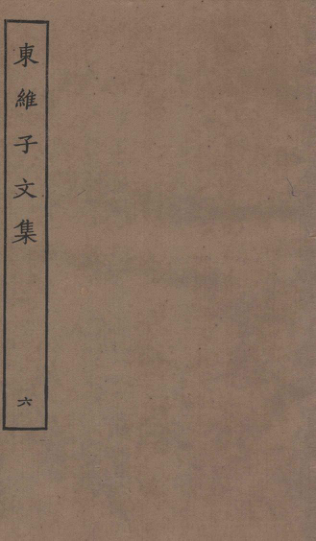 東維子文集
六